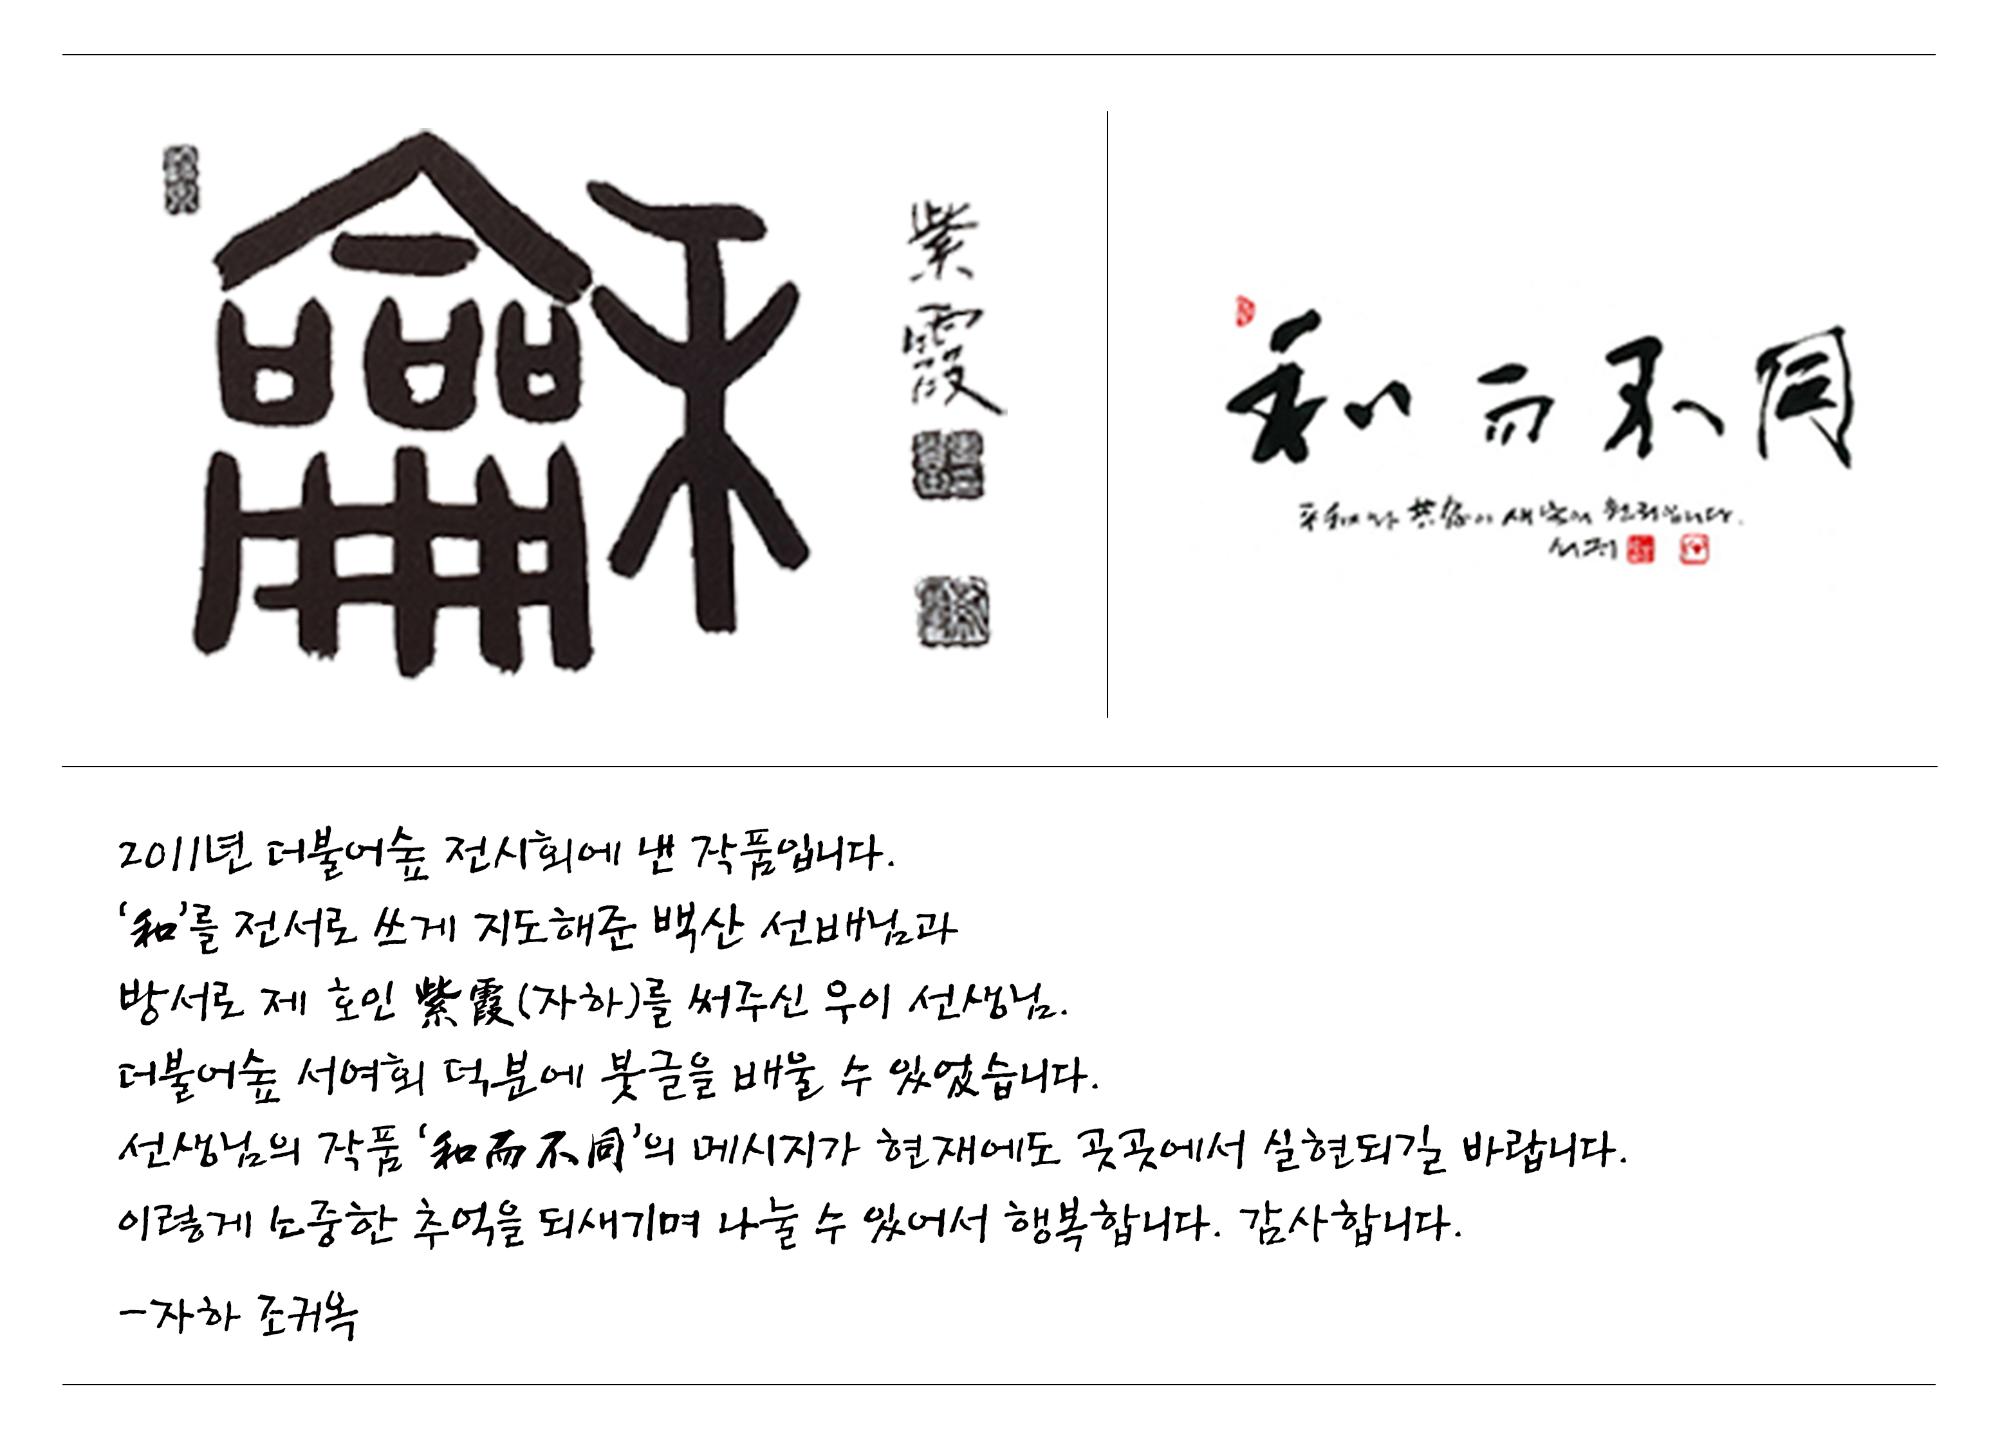 龢
紫霞
和而不同
平和와 共存이 새 시대
쇠귀
2011년 더불어숲 전시회에 낸 작품입니다.
‘和’를 전서로 쓰게 지도해준 백산 선배님과
방서로 제 호인 紫霞(자하)를 써주신 우이 선생님.
더불어숲 서여회 덕분에 붓글을 배울 수 있었습니다.
선생님의 작품 ‘和而不同’의 메시지가 현재에도 곳곳에서 실현되길 바랍니다.
이렇게 소중한 추억을 되새기며 나눌 수 있어서 행복합니다. 감사합니다.
-자하 조귀옥